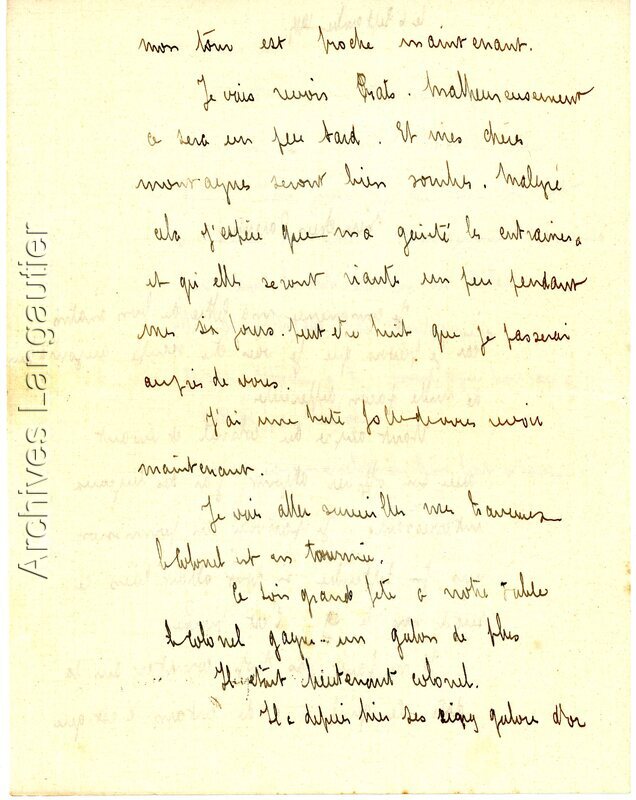 mon tour est proche maintenant.
Je vais revoir Prats. Malheureusement
ce sera un peu tard. Et mes chères
montagnes seront bien sombres. Malgré
cela j'espère que ma gaieté les entrainera
et qu'elles seront riantes un peu pendant
mes six jours. peut etre huit que je passerai
auprès de vous.
J'ai une hate folle de vous revoir
maintenant.
Je vais aller surveiller mes travaux
le Colonel est en tournée.
Ce soir grande fete a notre table
le Colonel gagne un galon de plus
Il était lieutenant colonel.
Il a depuis hier ses cinq galons d'or
Archives Langautier